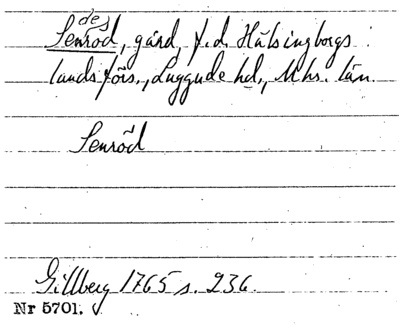 des
Senröd, gård, f.d. Hälsingborgs
landsförs., Luggude hd., Mhs. län.
Senröd
Gillberg 1765 s. 236.
Nr 5701.